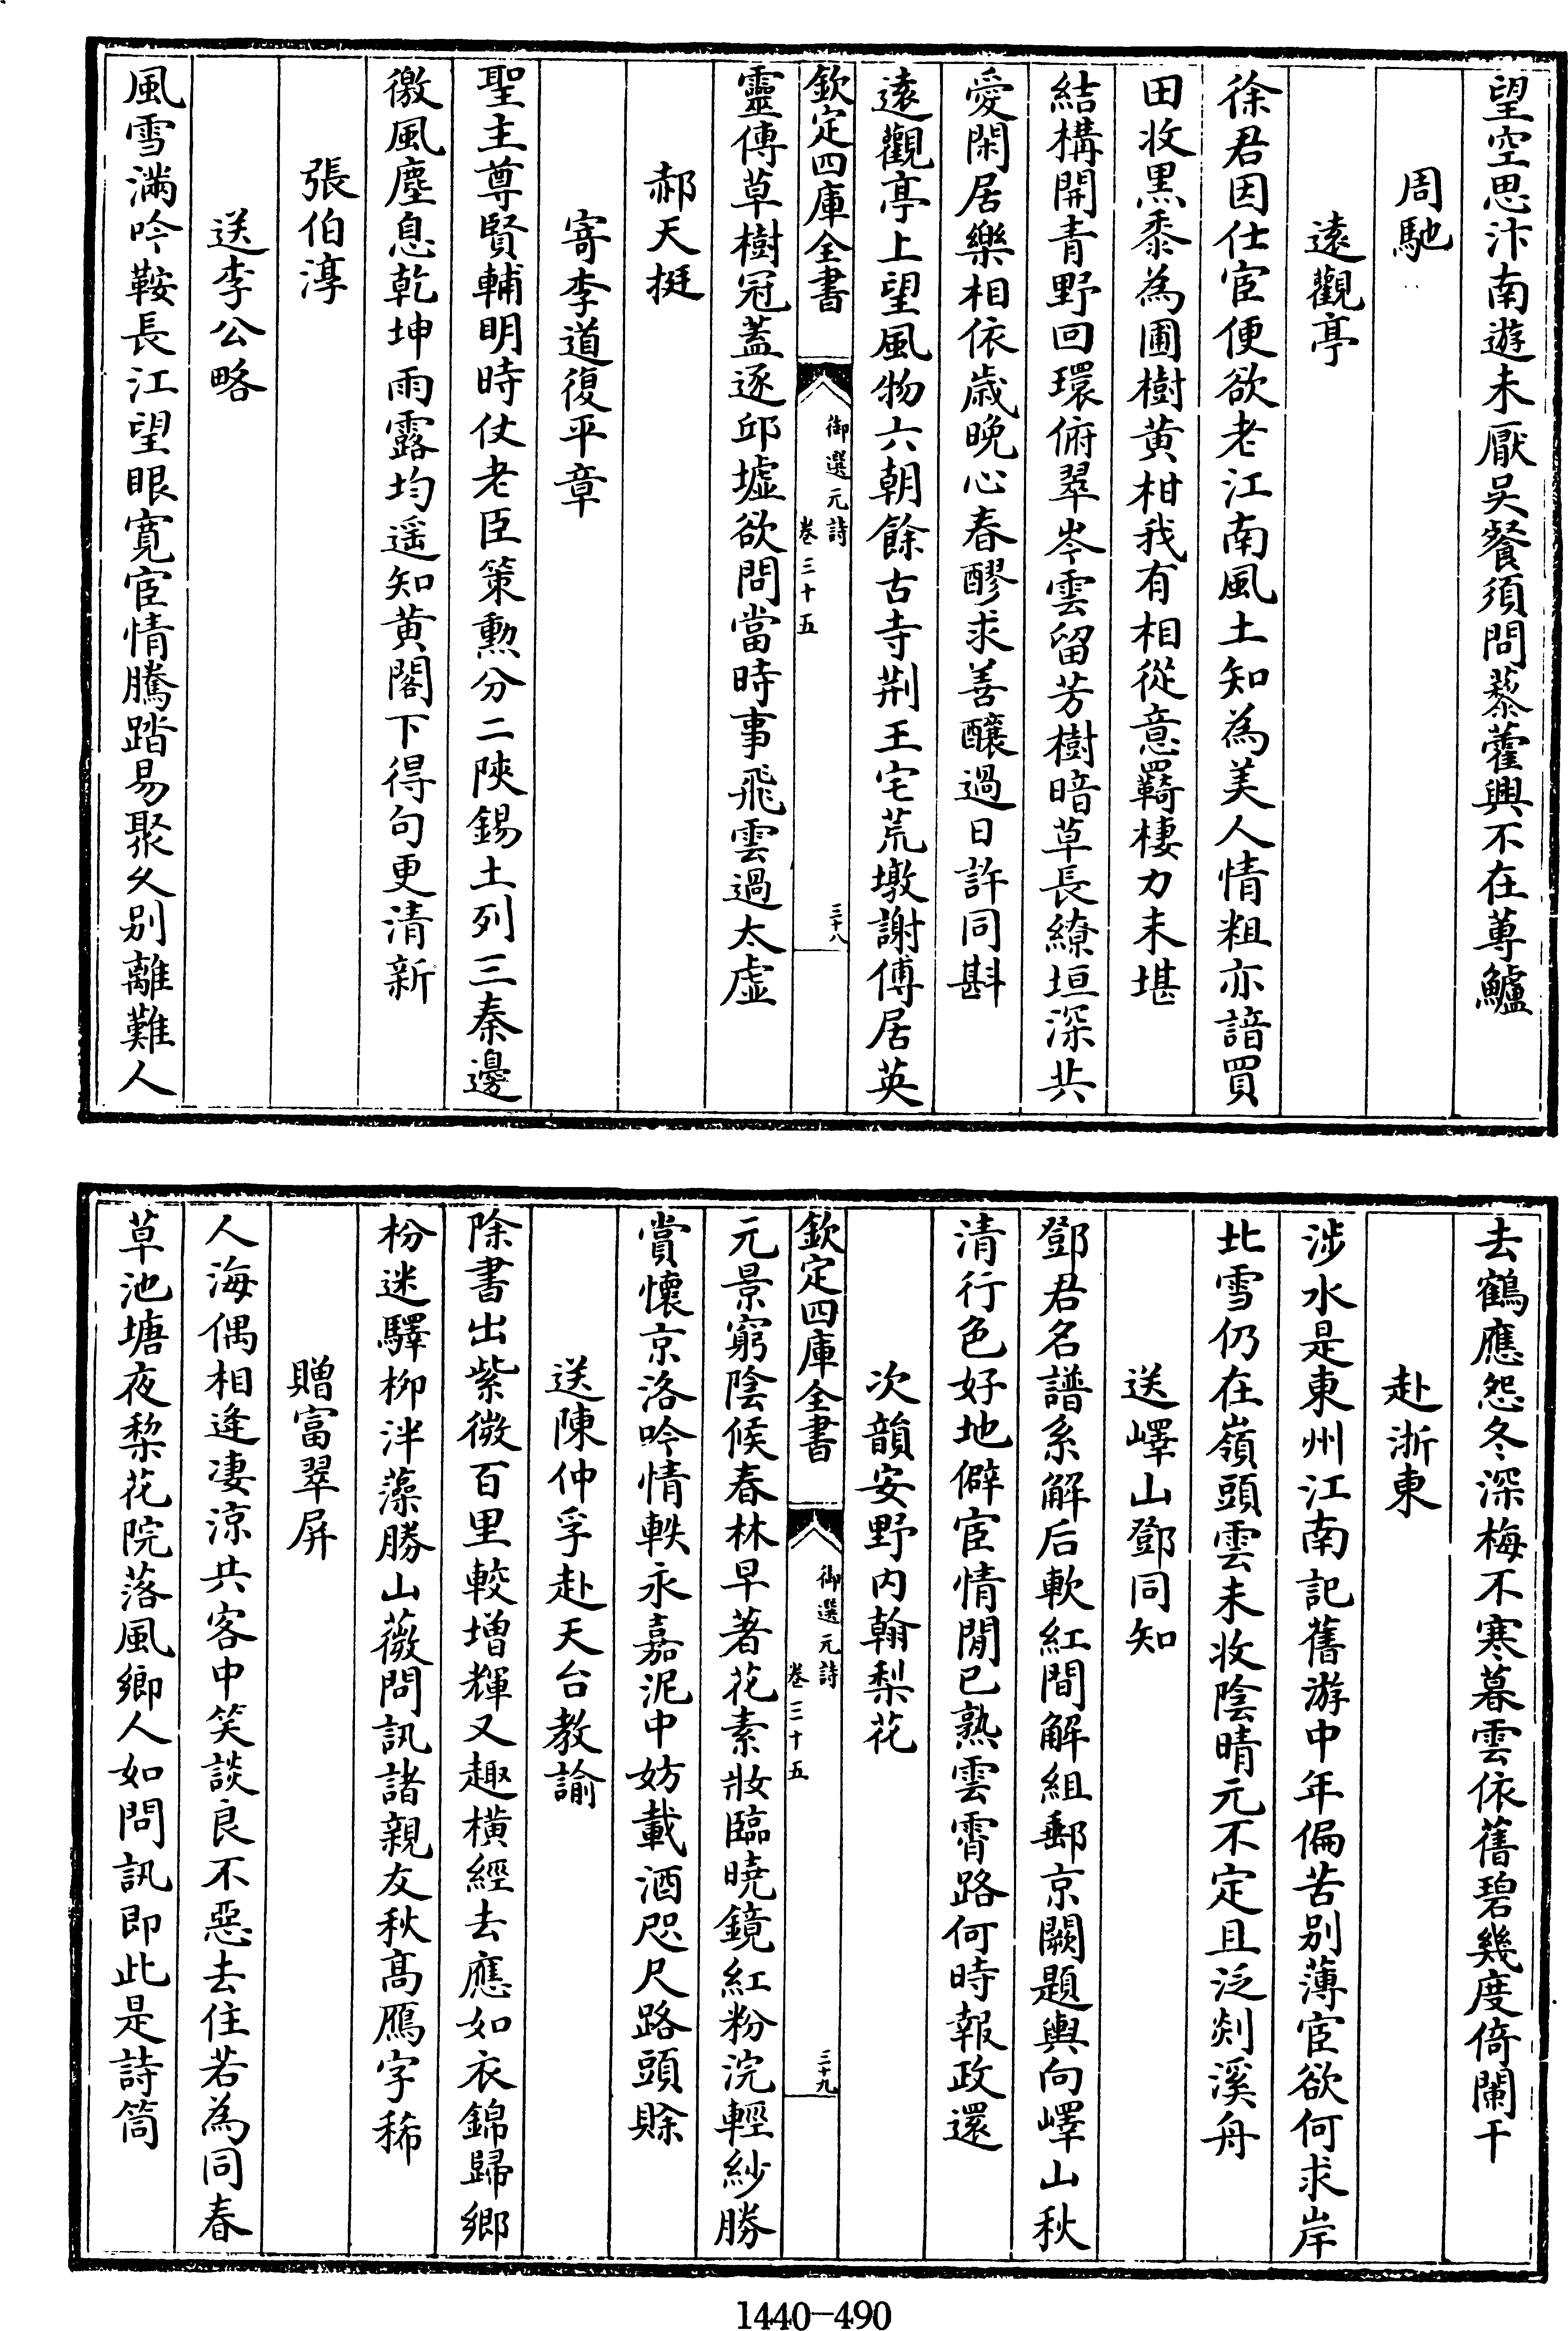 望空思汴南遊未厭吳餐須問藜藿興不在蓴鱸
周馳
遠觀亭
徐君因仕宦便欲老江南風土知為美人情粗亦諳買
田收黒黍為圃樹黄柑我有相從意羇棲力未堪
結構開青野回環俯翠岑雲留芳樹暗草長繚垣深共
愛閑居樂相依歲晚心春醪求善釀過日許同斟
遠觀亭上望風物六朝餘古寺荆王宅荒墩謝傅居英
欽定四庫全書
御選元詩
卷三十五
三十八
靈傳草樹冠蓋逐邱墟欲問當時事飛雲過太虚
郝天挺
寄李道復平章
聖主尊賢輔明時仗老臣策勲分二陜錫土列三秦邊
徼風塵息乾坤雨露均遥知黄閣下得句更清新
張伯淳
送李公略
風雪滿吟鞍長江望眼寛宦情騰踏易聚久别離難人
去鶴應怨冬深梅不寒暮雲依舊碧幾度倚闌干
赴浙東
涉水是東州江南記舊游中年偏苦别薄宦欲何求岸
北雪仍在嶺頭雲未收陰晴元不定且泛剡溪舟
送嶧山鄧同知
鄧君名譜系解后軟紅間解組郵京闕題輿向嶧山秋
清行色好地僻宦情閒已熟雲霄路何時報政還
次韻安野内翰梨花
欽定四庫全書
御選元詩
卷三十五
三十九
元景窮陰候春林早著花素妝臨曉鏡紅粉浣輕紗勝
賞懷京洛吟情軼永嘉泥中妨載酒咫尺路頭賒
送陳仲孚赴天台教諭
除書出紫微百里較增輝又趣横經去應如衣錦歸鄉
枌迷驛柳泮藻勝山薇問訊諸親友秋髙鴈字稀
贈富翠屏
人海偶相逢凄凉共客中笑談良不惡去住若為同春
草池塘夜棃花院落風鄉人如問訊即此是詩筒
1440-490